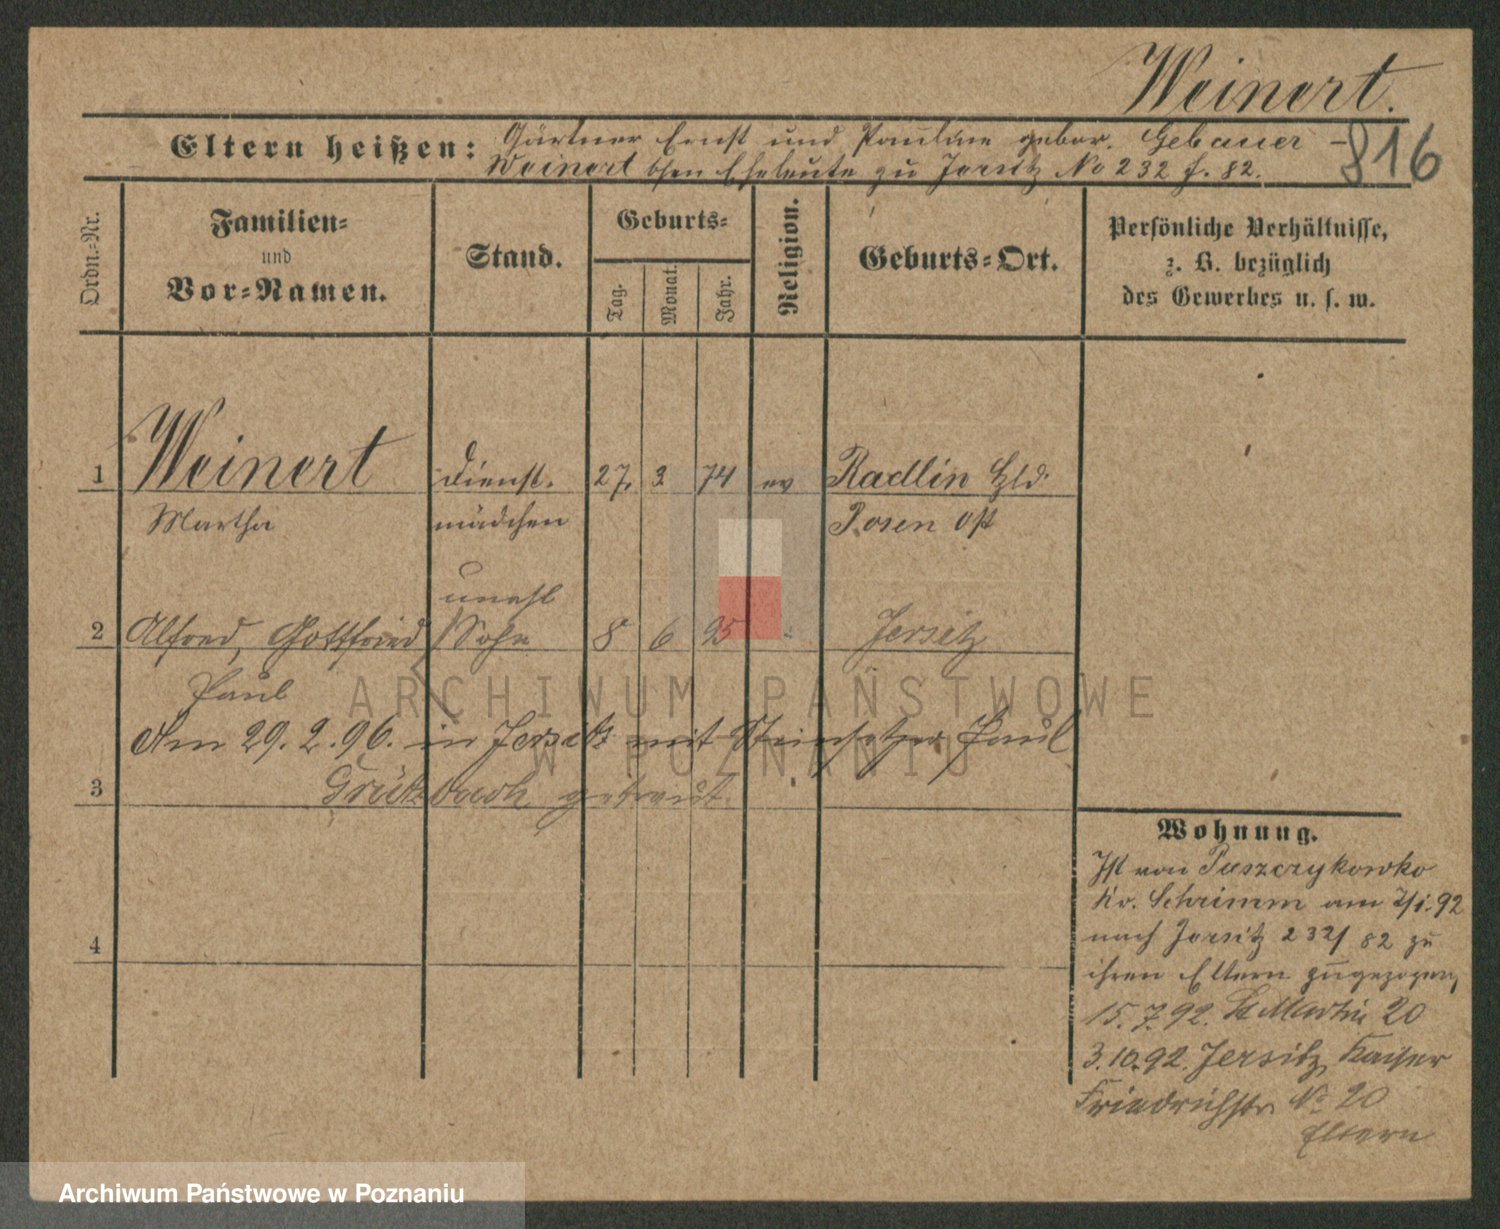 Weinert.
816
Eltern heißen: Gärtner Ernst und Pauline gebor. Gebauer –
Weinert'schen Eheleute zu Jersitz No 232 f. 82.
Ordn.-Nr.
Familien-
und
Vor-Namen.
Stand.
Geburts-
Tag.
Monat.
Jahr.
Religion.
Geburts-Ort.
Persönliche Verhältnisse,
z. B. bezüglich
des Gewerbes u. s. w.
1 Weinert Dienst- 27. 3 74 ev Radlin Hld.
Martha mädchen Posen Ost
unehl
2 Alfred, Gottfried Sohn 8 6 95 - Jersitz
Paul
Am 29. 2. 96. in Jersitz mit Steinsetzer Paul
3 Grützbach getraut.
4
Wohnung.
Ist von Puszczykowko
Kr. Schrimm am 2/1. 92
nach Jersitz 232/82 zu
ihren Eltern zugezogen,
15. 7. 92. St Martin 20
3. 10. 92. Jersitz, Kaiser
Friedrichstr. No 20
Eltern
ARCHIWUM PAŃSTWOWE
W POZNANIU
Archiwum Państwowe w Poznaniu